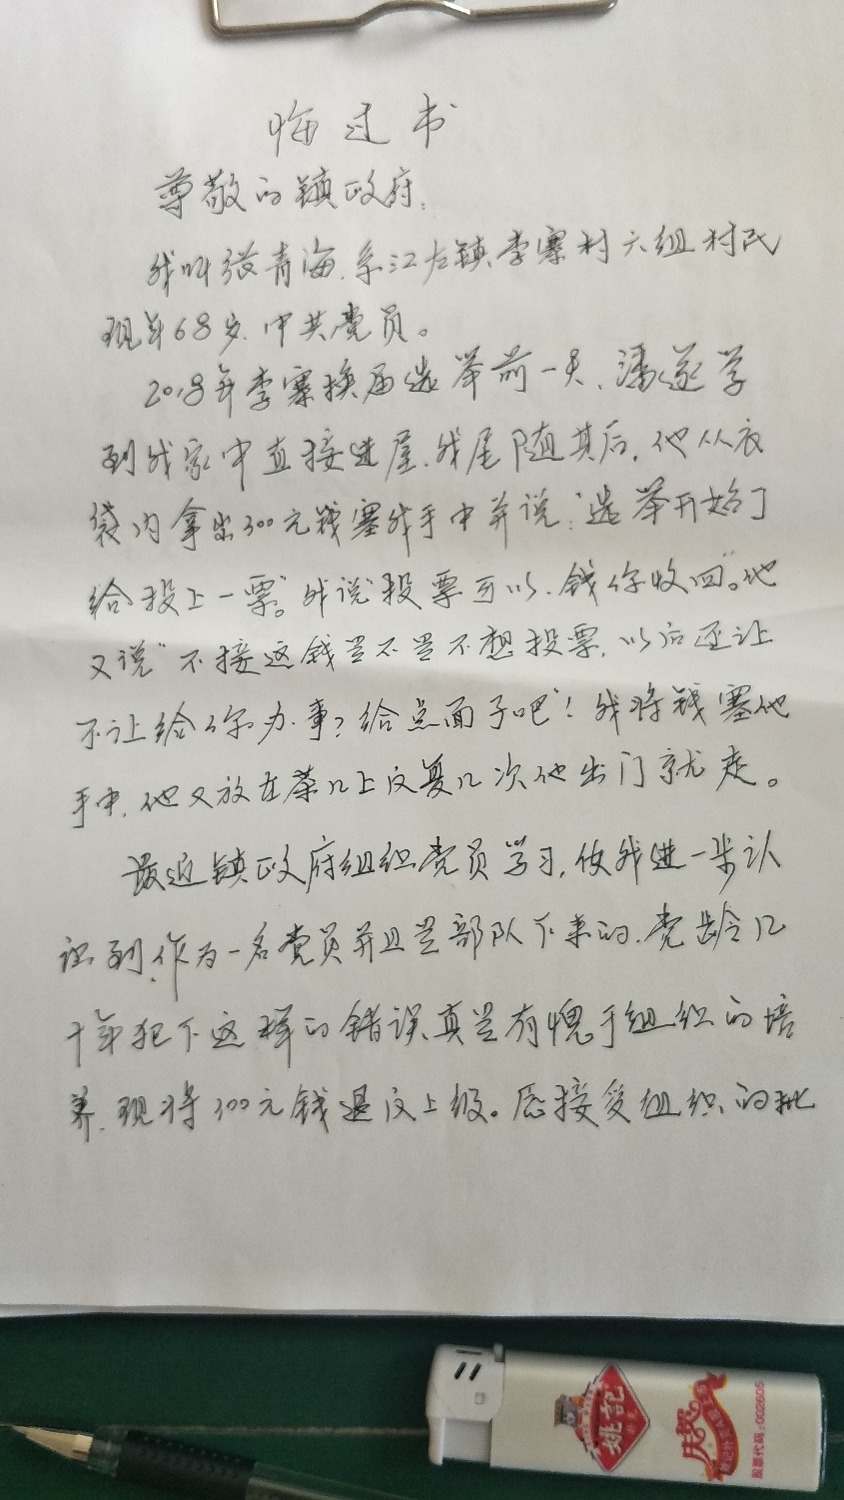 悔过书
尊敬的镇政府:
我叫张青海、系江左镇李寨村六组村民
现年68岁、中共党员。
2018年李寨换届选举前一天、潘遂学
到我家中直接进屋、我尾随其后,他从衣
袋内拿出300元钱塞我手中并说:"选举开始了
给投上一票"。我说"投票可以、钱你收回"。他
又说"不接这钱是不是不想投票,以后还让
不让给你办事?给点面子吧"!我将钱塞他
手中,他又放在茶几上反复几次他出门就走。
最近镇政府组织党员学习,使我进一步认
识到、作为一名党员并且是部队下来的、党龄几
十年犯下这样的错误、真是有愧于组织的培
养、现将300元钱退反上级。愿接受组织的批
姚记
庆祝
股票代码:002605